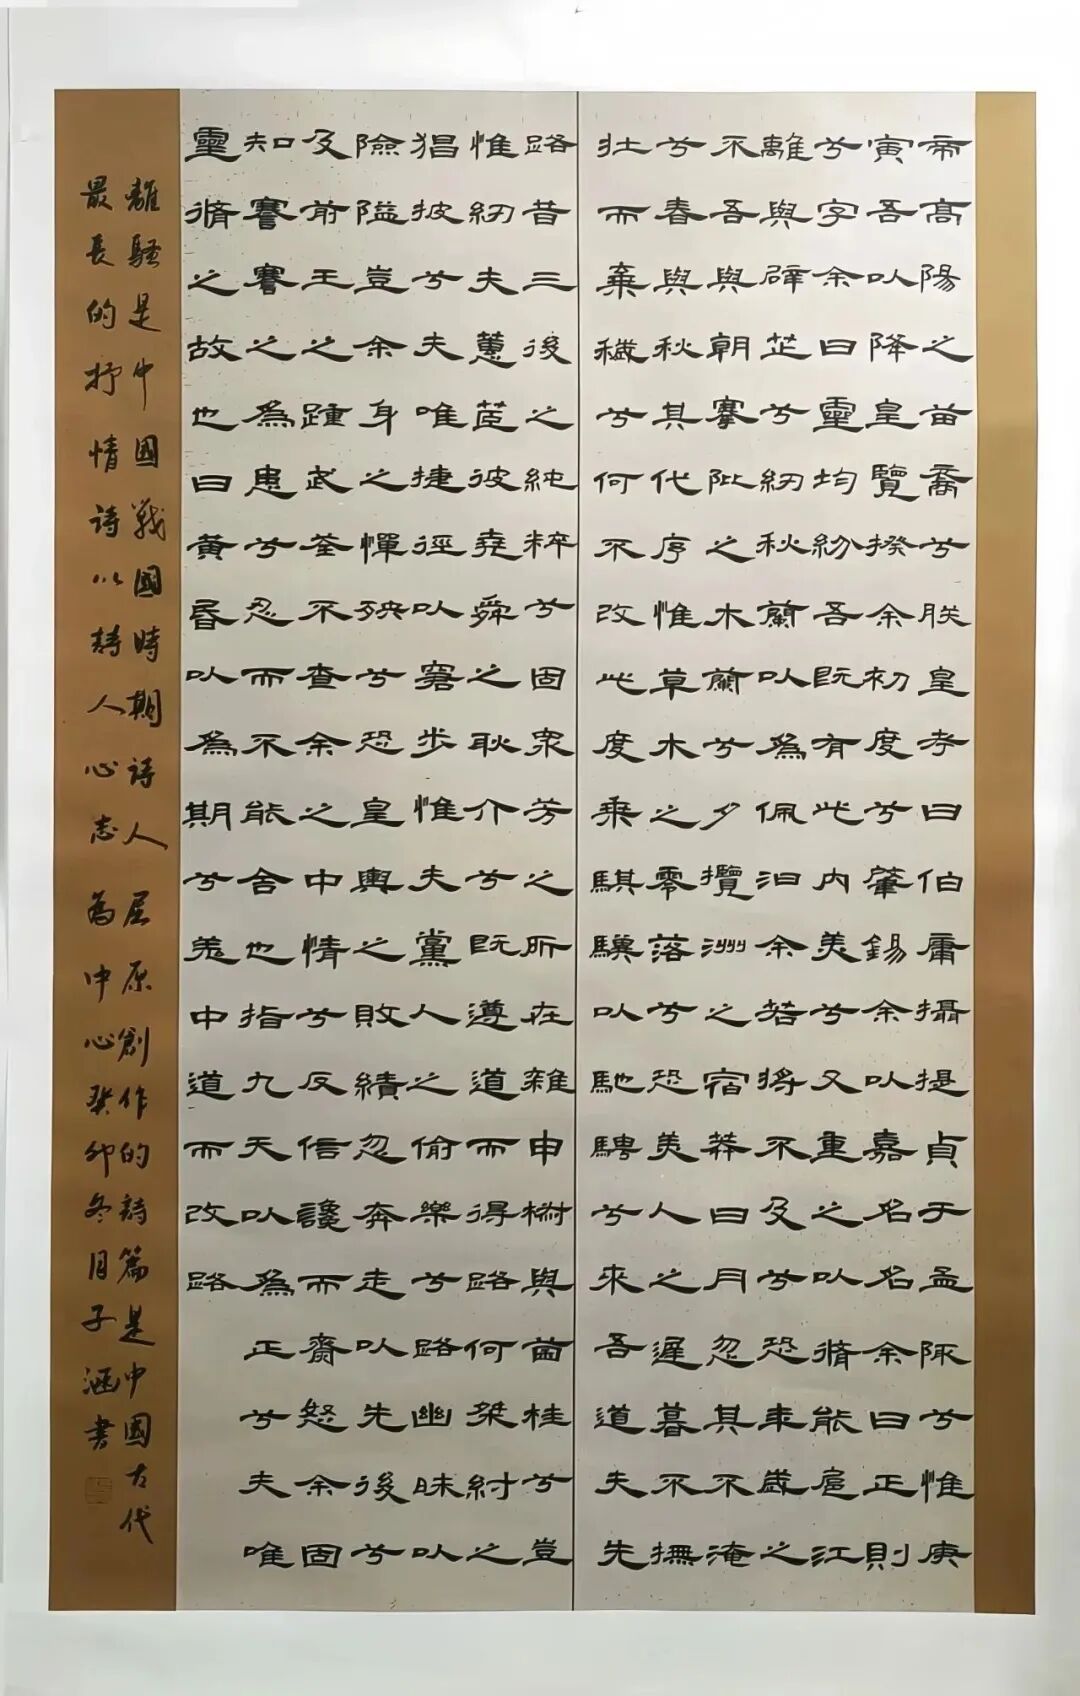 帝高陽之苗裔兮朕皇考曰伯庸攝提貞于孟陬兮惟庚
寅吾以降皇覽揆余初度兮肇錫余以嘉名名余曰正則
兮字余曰靈均紛吾既有此內美兮又重之以脩能扈江
離與辟芷兮紉秋蘭以為佩汩余若將不及兮恐年歲之
不吾與朝搴阰之木蘭兮夕攬洲之宿莽日月忽其不淹
兮春與秋其代序惟草木之零落兮恐美人之遲暮不撫
壯而棄穢兮何不改此度乘騏驥以馳騁兮來吾道夫先
路昔三後之純粹兮固眾芳之所在雜申椒與菌桂兮豈
惟紉夫蕙茝彼堯舜之耿介兮既遵道而得路何桀紂之
猖披兮夫唯捷徑以窘步惟夫黨人之偷樂兮路幽昧以
險隘豈余身之憚殃兮恐皇輿之敗績忽奔走以先後兮
及前王之踵武荃不查余之中情兮反信讒而齌怒余固
知謇謇之為患兮忍而不能舍也指九天以為正兮夫唯
靈脩之故也曰黃昏以為期兮羌中道而改路
離騷是中國戰國時期詩人屈原創作的詩篇是中國古代
最長的抒情詩以詩人心志為中心癸卯冬月子涵書